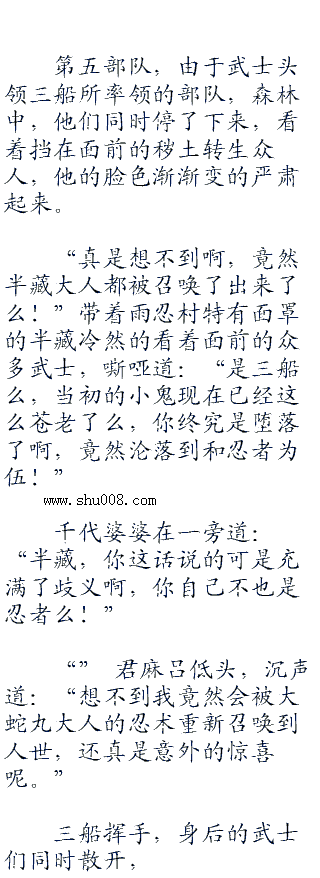 第五部队，由于武士头
领三船所率领的部队，森林
中，他们同时停了下来，看
着挡在面前的秽土转生众
人，他的脸色渐渐变的严肃
起来。
“真是想不到啊，竟然
半藏大人都被召唤了出来了
么！”带着雨忍村特有面罩
的半藏冷然的看着面前的众
多武士，嘶哑道：“是三船
么，当初的小鬼现在已经这
么苍老了么，你终究是堕落
了啊，竟然沦落到和忍者为
伍！”
www.shu008.com
千代婆婆在一旁道：
“半藏，你这话说的可是充
满了歧义啊，你自己不也是
忍者么！”
“” 君麻吕低头，沉声
道：“想不到我竟然会被大
蛇丸大人的忍术重新召唤到
人世，还真是意外的惊喜
呢。”
三船挥手，身后的武士
们同时散开，